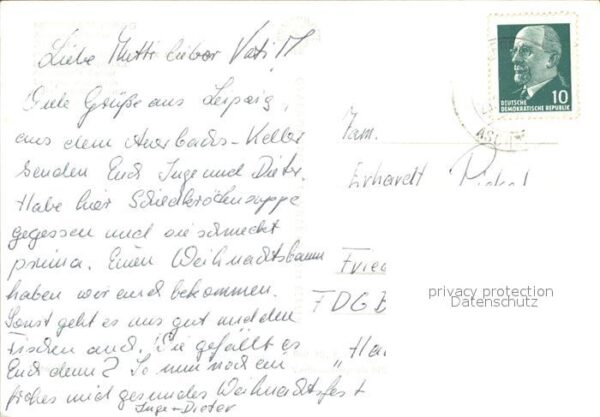 Liebe Mutti lieber Vati!!
Viele Grüße aus Leipzig,
aus dem Auerbachs-Keller
senden Euch Inge und Dieter.
Habe hier Schildkrötensuppe
gegessen und sie schmeckt
prima. Einen Weihnachtsbaum
haben wir auch bekommen.
Sonst geht es uns gut und den
Fischen auch. Wie gefällt es
Euch denn? So nun noch ein
frohes und gesundes Weihnachtsfest
Inge + Dieter
10
DEUTSCHE
DEMOKRATISCHE REPUBLIK
Fam.
Erhardt
Fried
FDGB
"Ha
privacy protection
Datenschutz